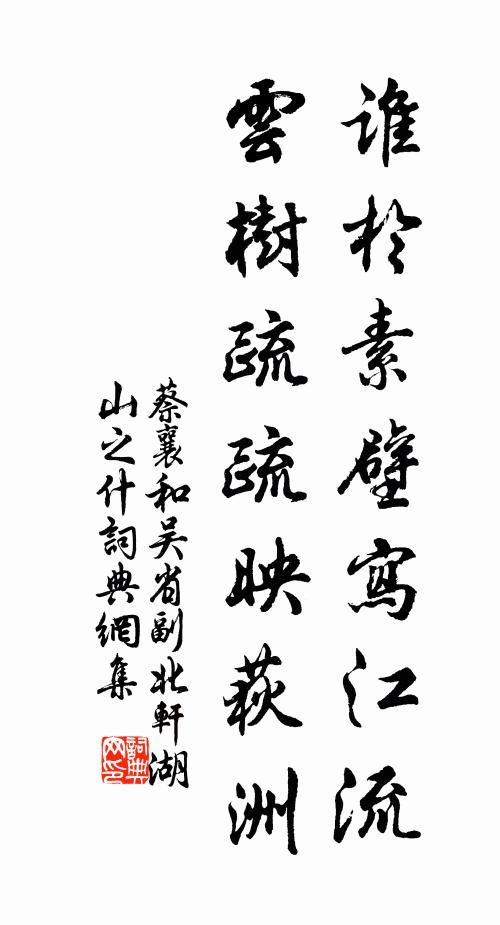 誰於素壁寫江流
雲樹疏疏映荻洲
蔡襄和吴省副北軒湖
山之什詞典網集
詞典
网印